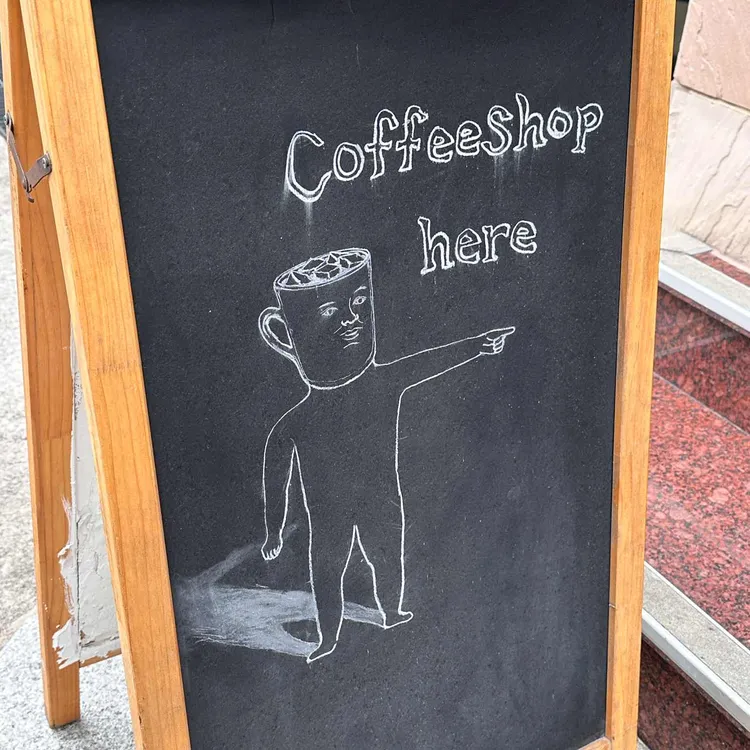 Coffeeshop
here